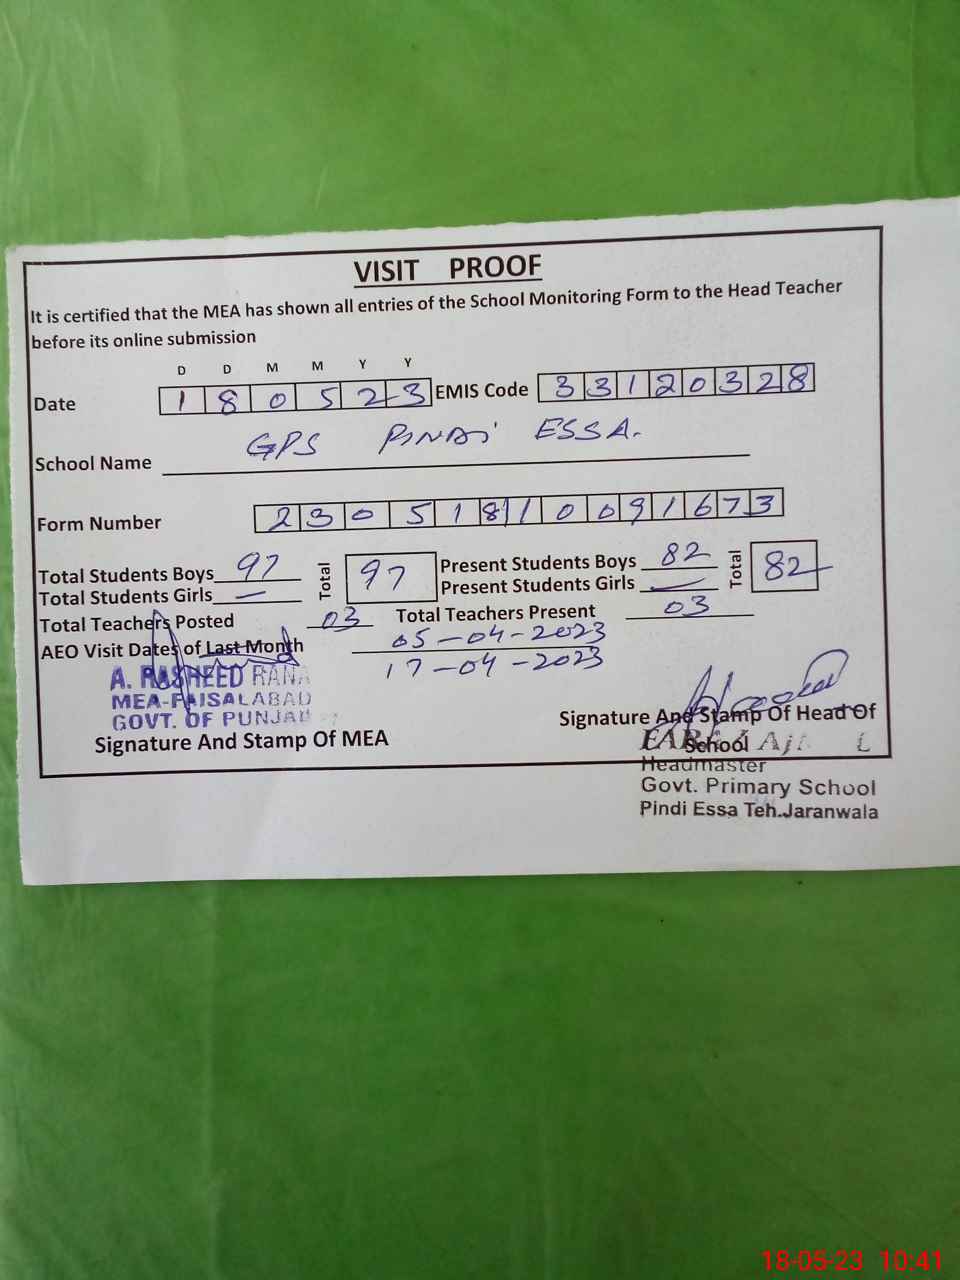 VISIT PROOF
It is certified that the MEA has shown all entries of the School Monitoring Form to the Head Teacher
before its online submission
D D M M Y Y
Date 1 8 0 5 2 3 EMIS Code 3 3 1 2 0 3 2 8
School Name GPS PINDI ESSA.
Form Number 2 3 0 5 1 8 1 0 0 9 1 6 7 3
Total Students Boys 97 Total 97 Present Students Boys 82 Total 82
Total Students Girls — Present Students Girls —
Total Teachers Posted 03 Total Teachers Present 03
AEO Visit Dates of Last Month 05-04-2023
17-04-2023
A. RASHEED RANA
MEA-FAISALABAD
GOVT. OF PUNJAB
Signature And Stamp Of MEA
Signature And Stamp Of Head Of
School
Headmaster
Govt. Primary School
Pindi Essa Teh.Jaranwala
18-05-23 10:41